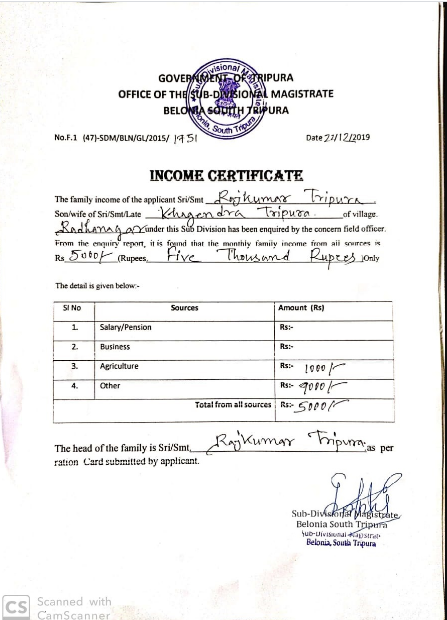 GOVERNMENT OF TRIPURA
OFFICE OF THE SUB-DIVISIONAL MAGISTRATE
BELONIA SOUTH TRIPURA
No.F.1 (47)-SDM/BLN/GL/2015/ 1951 Date 27/12/2019
INCOME CERTIFICATE
The family income of the applicant Sri/Smt Rajkumar Tripura
Son/wife of Sri/Smt/Late Khagendra Tripura. of village.
Radhanagar under this Sub Division has been enquired by the concern field officer.
From the enquiry report, it is found that the monthly family income from all sources is
Rs 5000/- (Rupees, Five Thousand Rupees )Only
The detail is given below:-
Sl No Sources Amount (Rs)
1. Salary/Pension Rs:-
2. Business Rs:-
3. Agriculture Rs:- 1000/-
4. Other Rs:- 4000/-
Total from all sources Rs:- 5000/-
The head of the family is Sri/Smt, Rajkumar Tripura, as per
ration Card submitted by applicant.
Sub-Divisional Magistrate
Belonia South Tripura
Sub-Divisional Magistrate
Belonia, South Tripura
CS Scanned with
CamScanner